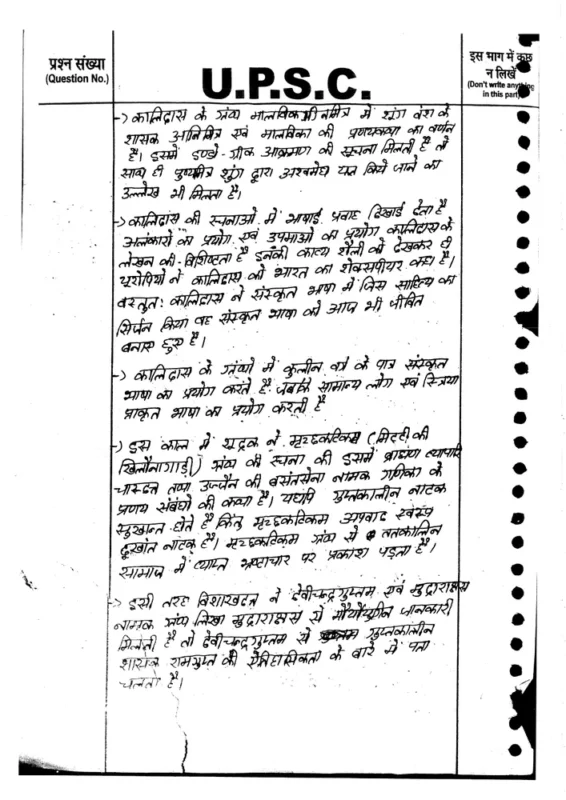 प्रश्न संख्या
(Question No.)
U.P.S.C.
इस भाग में कुछ
न लिखें
(Don't write anything
in this part)
-> कालिदास के ग्रंथ मालविकाग्निमित्र में शुंग वंश के
शासक अग्निमित्र एवं मालविका की प्रणयकथा का वर्णन
है। इसमें इण्डो-ग्रीक आक्रमण की सूचना मिलती है तो
साथ ही पुष्यमित्र शुंग द्वारा अश्वमेध यज्ञ किये जाने का
उल्लेख भी मिलता है।
-> कालिदास की रचनाओं में भाषाई प्रवाह दिखाई देता है
अलंकारों का प्रयोग एवं उपमाओं का प्रयोग कालिदास के
लेखन की विशिष्टता है इनकी काव्य शैली को देखकर ही
यूरोपियों ने कालिदास को भारत का शेक्सपीयर कहा है।
वस्तुतः कालिदास ने संस्कृत भाषा में जिस साहित्य का
सिर्जन किया वह संस्कृत भाषा को आज भी जीवित
बनाए हुए है।
-> कालिदास के ग्रंथो में कुलीन वर्ग के पात्र संस्कृत
भाषा का प्रयोग करते है जबकि सामान्य लोग एवं स्त्रिया
प्राकृत भाषा का प्रयोग करती है
-> इस काल में शूद्रक ने मृच्छकटिकम (मिट्टी की
खिलौनागाड़ी) ग्रंथ की रचना की इसमें ब्राह्मण व्यापारी
चारूदत्त तथा उज्जैन की बसंतसेना नामक गणिका के
प्रणय संबंधो की कथा है। यद्यपि गुप्तकालीन नाटक
सुखान्त होते है किंतु मृच्छकटिकम अपवाद स्वरूप
दुखांत नाटक है। मृच्छकटिकम ग्रंथ से तत्कालिन
सामाज में व्याप्त भ्रष्टाचार पर प्रकाश पड़ता है।
-> इसी तरह विशाखदत्त ने देवीचन्द्रगुप्तम एवं मुद्राराक्षस
नामक ग्रंथ लिखा मुद्राराक्षस से मौर्ययुगीन जानकारी
मिलती है तो देवीचन्द्रगुप्तम से गुप्तकालीन
शासक रामगुप्त की ऐतिहासिकता के बारे में पता
चलता है।